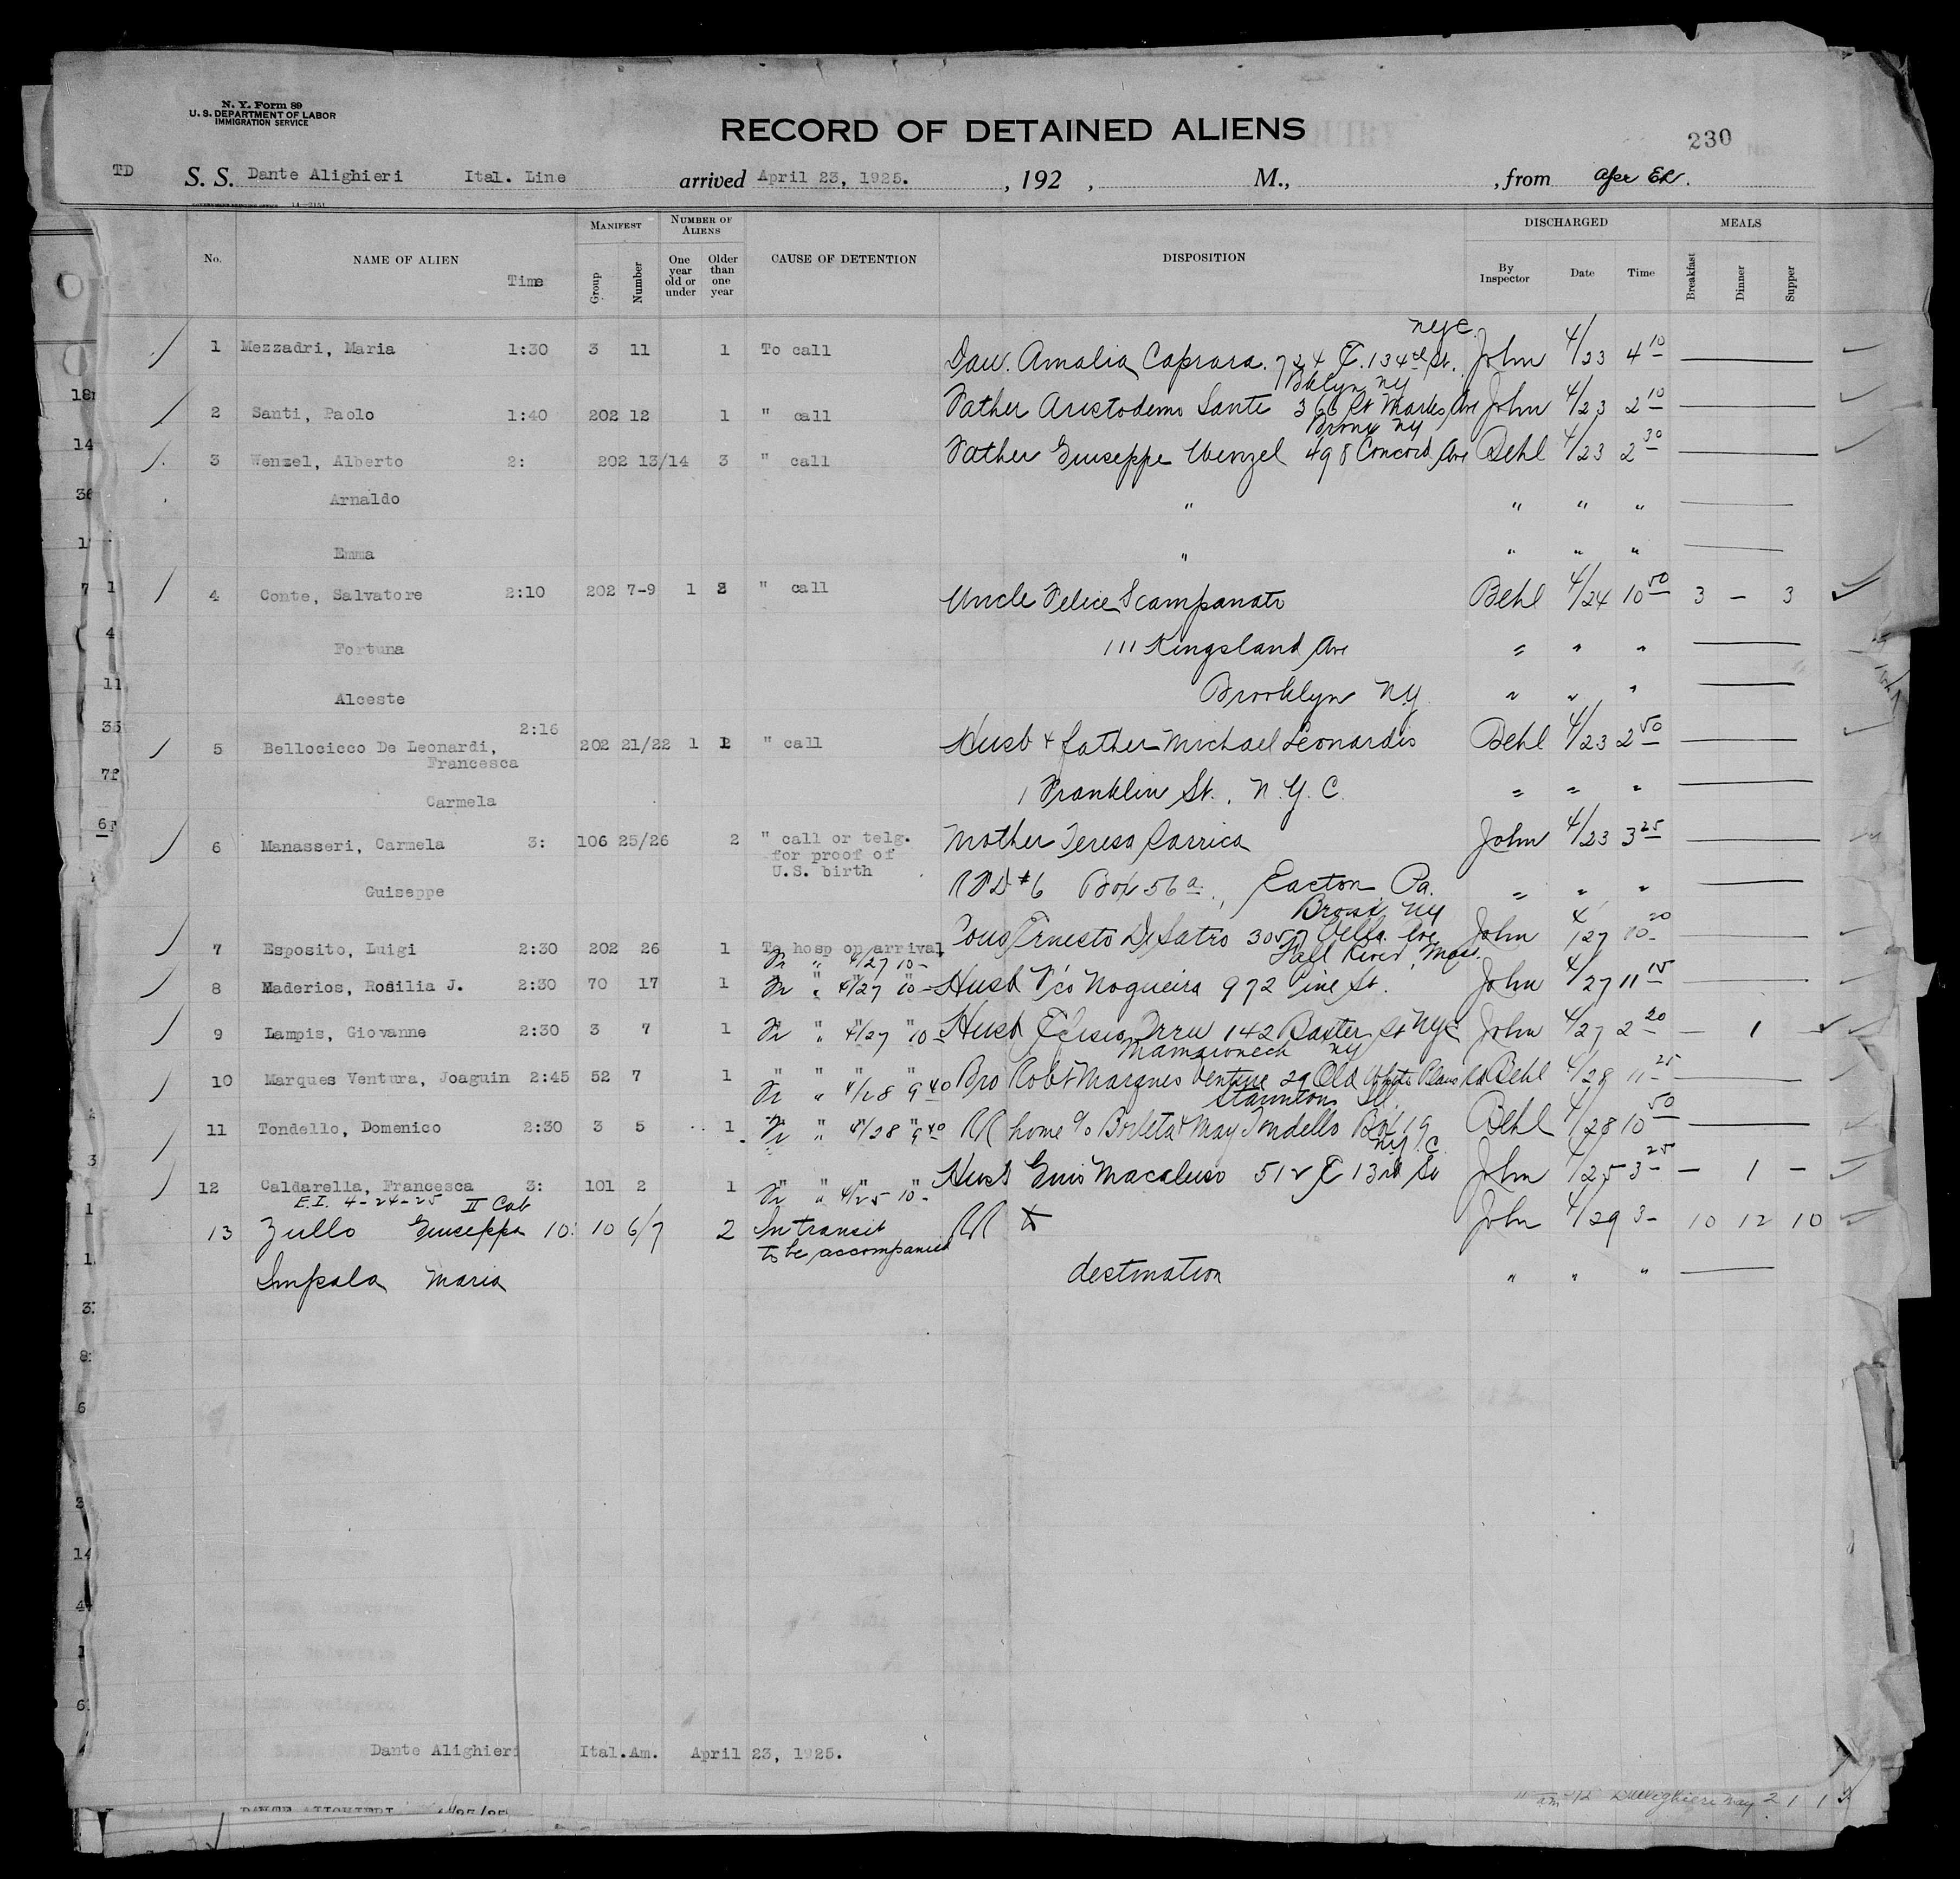 N. Y. Form 89
U. S. DEPARTMENT OF LABOR
IMMIGRATION SERVICE
RECORD OF DETAINED ALIENS
230
TD S. S. Dante Alighieri Ital. Line arrived April 23, 1925. , 192 , M., , from
No. NAME OF ALIEN Time MANIFEST Group Number NUMBER OF ALIENS One year old or under Older than one year CAUSE OF DETENTION DISPOSITION DISCHARGED By Inspector Date Time MEALS Breakfast Dinner Supper
NYC
1 Mezzadri, Maria 1:30 3 11 1 To call Dau. Amalia Caprara. 724 E. 134th St. John 4/23 4 10
Bklyn NY
2 Santi, Paolo 1:40 202 12 1 " call Father Aristodemo Santi 366 St Marks Ave John 4/23 2 10
Bronx NY
3 Wenzel, Alberto 2: 202 13/14 3 " call Father Giuseppe Wenzel 498 Concord Ave Behl 4/23 2 30
Arnaldo " " " "
Emma " " " "
4 Conte, Salvatore 2:10 202 7-9 1 2 " call Uncle Felice Scampanato Behl 4/24 10 50 3 – 3
Fortuna 111 Kingsland Ave " " "
Alceste Brooklyn NY. " " "
2:16
5 Bellocicco De Leonardi, 202 21/22 1 1 " call Husb + father Michael Leonardis Behl 4/23 2 50
Francesca
Carmela 1 Franklin St., N.Y.C. " " "
6 Manasseri, Carmela 3: 106 25/26 2 " call or telg. Mother Teresa Carrica John 4/23 3 25
for proof of
U.S. birth
Guiseppe RFD #6 Box 56a., Easton Pa. " " "
Bronx NY
7 Esposito, Luigi 2:30 202 26 1 To hosp on arrival Cous Ernesto 3057 Ave John 4/27 10 20
Fr " 4/27 10– Fall River, Mass.
8 Maderios, Rosilia J. 2:30 70 17 1 " " "
Fr " 4/27 10– Husb Nogueira 972 Pine St. John 4/27 11 15
9 Lampis, Giovanne 2:30 3 7 1 " " "
Fr " 4/27 10– Husb Efisio Orru 142 Baxter St NYC John 4/27 2 20 – 1 –
Mamaroneck NY
10 Marques Ventura, Joaguin 2:45 52 7 1 " " " "
Fr " 4/28 9 40 Bro Robt Marques Ventura 29 Old White Plains Rd Behl 4/28 11 25
Staunton Ill
11 Tondello, Domenico 2:30 3 5 1 " " " "
Fr " 4/28 9 40 RR home c/o May Tondello Box 19 Behl 4/28 10 50
N.Y.C.
12 Caldarella, Francesca 3: 101 2 1 " " " "
Fr " 4/25 10– Husb Gius Macaluso 512 E 13rd St John 4/25 3 25 – 1 –
E.I. 4-24-25 II Cab
13 Zullo Giuseppa 10: 10 6/7 2 In transit RR to John 4/29 3– 10 12 10
to be accompanied
Impala Maria destination " " "
Dante Alighieri Ital.Am. April 23, 1925.
DANTE ALIGHIERI